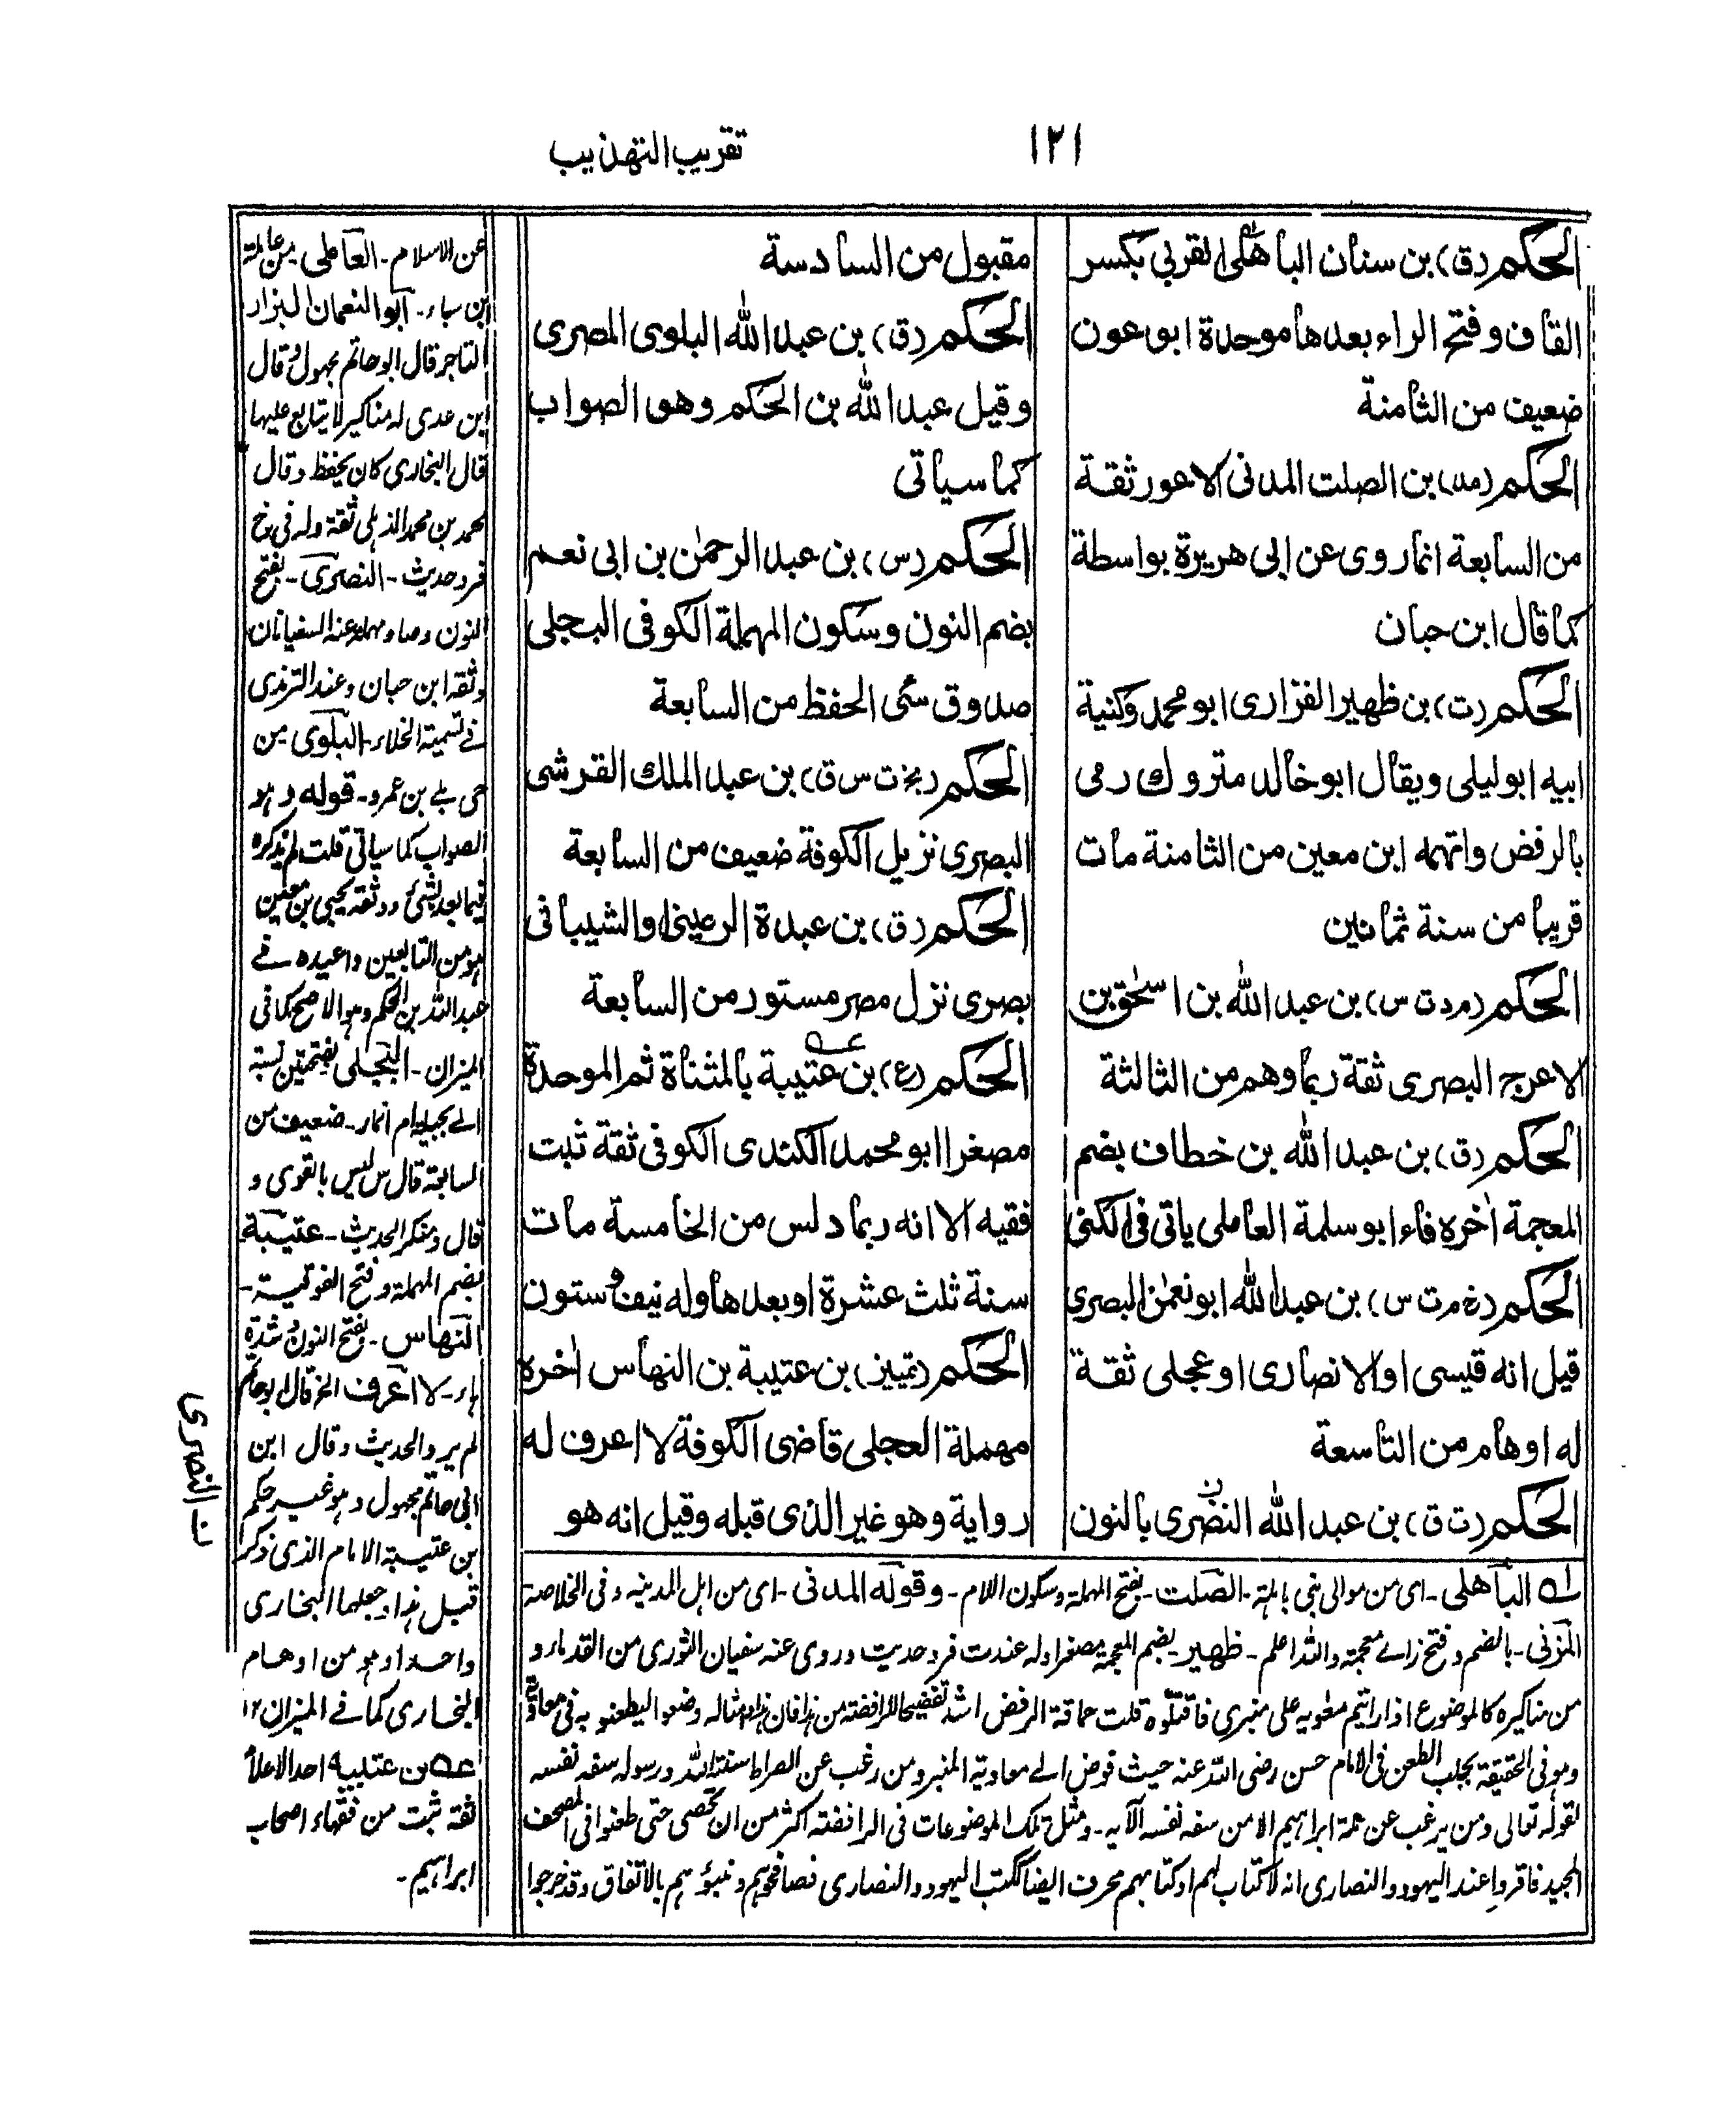 ١٢١
تقريب التهذيب
الحكم (ق) بن سنان الباهلى القربي بكسر
القاف وفتح الراء بعدها موحدة ابو عون
ضعيف من الثامنة
الحكم (مد) بن الصلت المدنى الاعور ثقة
من السابعة انما روى عن ابى هريرة بواسطة
كما قال ابن حبان
الحكم (ت) بن ظهير الفزارى ابو محمد وكنية
ابيه ابو ليلى ويقال ابو خالد متروك رمى
بالرفض واتهمه ابن معين من الثامنة مات
قريبا من سنة ثمانين
الحكم (مدت س) بن عبد الله بن اسحٰق بن
الاعرج البصرى ثقة ربما وهم من الثالثة
الحكم (ق) بن عبد الله بن خطاف بضم
المعجمة اٰخره فاء ابو سلمة العاملى ياتى فى الكنى
الحكم (خ مرت س) بن عبد الله ابو نعمٰن البصرى
قيل انه قيسى او الانصارى او عجلى ثقة
له اوهام من التاسعة
الحكم (ت ق) بن عبد الله النصرى بالنون
مقبول من السادسة
الحكم (ق) بن عبد الله البلوى المصرى
وقيل عبد الله بن الحكم وهو الصواب
كما سياتى
الحكم (س) بن عبد الرحمٰن بن ابى نعم
بضم النون وسكون المهملة الكوفى البجلى
صدوق سئ الحفظ من السابعة
الحكم (بخ ت س ق) بن عبد الملك القرشى
البصرى نزيل الكوفة ضعيف من السابعة
الحكم (ق) بن عبدة الرعينى او الشيبانى
بصرى نزل مصر مستور من السابعة
الحكم (ع) بن عتيبة بالمثناة ثم الموحدة
مصغرا ابو محمد الكندى الكوفى ثقة ثبت
فقيه الا انه ربما دلس من الخامسة مات
سنة ثلث عشرة او بعدها وله نيف و ستون
الحكم (تمييز) بن عتيبة بن النهاس اٰخره
مهملة العجلى قاضى الكوفة لا اعرف له
رواية وهو غير الذى قبله وقيل انه هو
عن الاسلام - العاملى - من عاملة
ابن سباء - ابو النعمان البزار
التاجر قال ابو حاتم مجهول و قال
ابن عدى له مناكير لا يتابع عليها
قال البخارى كان يحفظ وقال
محمد بن محمد الذهلى ثقة وله فى خ
فرد حديث - النصرى - بفتح
النون وصاد مهملة عنه السفيانان
وثقه ابن حبان وعند الترمذى
فى تسمية الخلاء - البلوى من
حى بلے بن عمرو - قوله وهو
الصواب كما سياتى قلت لم يذكره
فيما بعد بشئ ووثقه يحيى بن معين
هو من التابعين واعيده فے
عبد الله بن الحكم وهو الاصح كما فى
الميزان - البجلى بفتحتين نسبة
الے بجيلة ام انمار - ضعيف من
السابعة قال س ليس بالقوى و
قال د منكر الحديث - عتيبة
بضم المهملة وفتح الفوقية -
النهاس - بفتح النون و شدة
هاء - لا اعرف الخ قال ابو حاتم
لم يرو الحديث وقال ابن
ابى حاتم مجهول وهو غير حكم
بن عتيبة الامام الذى ذكر
قبيل هذا و جعلهما البخارى
واحدا وهو من اوهام
البخارى كما فے الميزان ١٢
عه بن عتيبة احد الاعلام
ثقة ثبت من فقهاء اصحاب
ابراهيم -
ن النصرى
له الباهلى - اى من موالى بنى باهلة - الصلت - بفتح المهملة وسكون اللام - وقوله المدنى - اى من اهل المدينه وفى الخلاصة
المزنى - بالضم وفتح زاے معجمة والله اعلم - ظهير - بضم المعجمة مصغرا وله عند ت فرد حديث وروى عنه سفيان الثورى من القدماء و
من مناكيره كالموضوع اذا رايتم معٰويه على منبرى فاقتلوه قلت حماقة الرفض اشد تفضيحا للرافضة من هذا فان هذا وامثاله وضعوا ليطعنوا به فى معاوية
وهو فى الحقيقة يجلب الطعن فى الامام حسن رضى الله عنه حيث فوض الے معاوية المنبر ومن رغب عن الصراط سنة الله و رسوله سفه نفسه
لقوله تعالى ومن يرغب عن ملة ابراهيم الا من سفه نفسه الآيه - ومثل تلك الموضوعات فى الرافضة اكثر من ان تحصى حتى طعنوا فى المصحف
المجيد فاقروا عند اليهود والنصارى انه لا كتاب لهم او كتابهم محرف ايضا ككتب اليهود والنصارى فصافحوهم و بالاتفاق وقد خرجوا